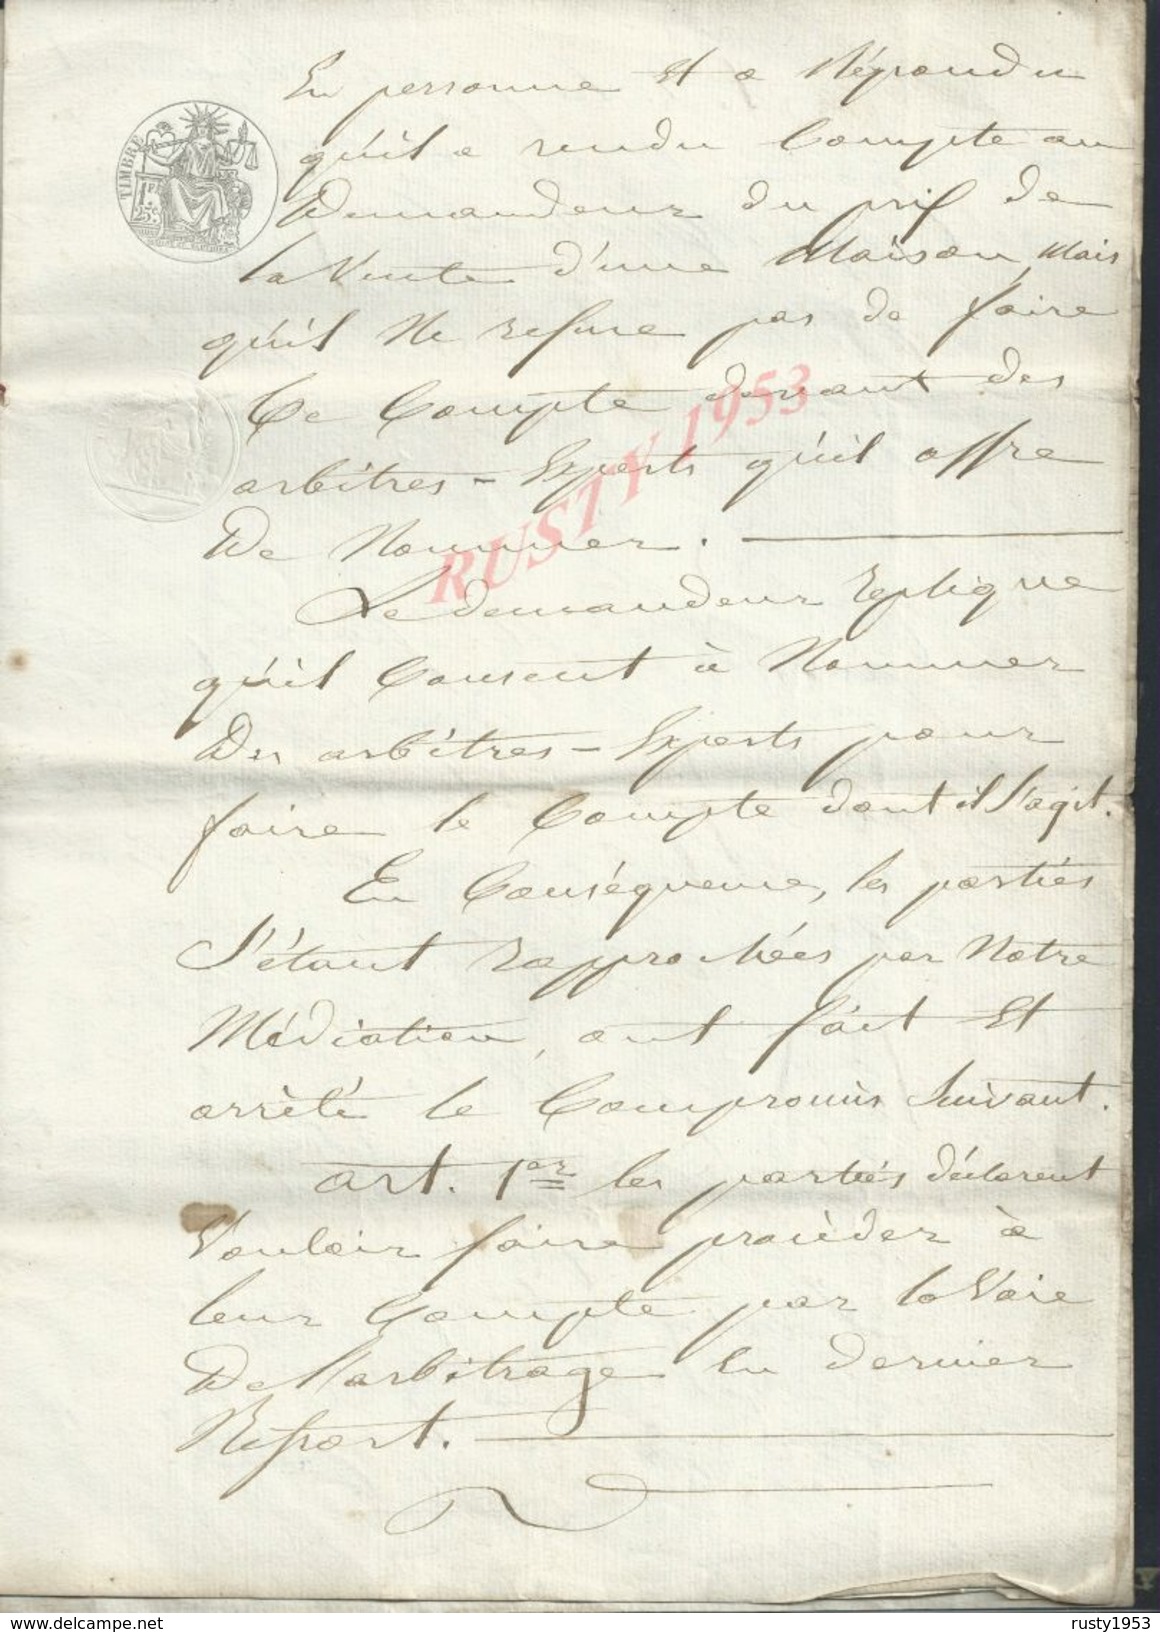 En personne Et a Répondu
qu'il a rendu Compte au
Demandeur du prix de
la Vente d'une Maison, Mais
qu'il Ne refuse pas de faire
Ce Compte devant des
arbitres - Experts qu'il offre
De Nommer.
Le demandeur replique
qu'il Consent à Nommer
Des arbitres - Experts pour
faire le Compte dont il s'agit.
En Conséquence, les parties
S'étant rapprochées par Notre
Médiation, ont fait Et
arrêté le Compromis Suivant.
art. 1er les parties déclarent
Vouloir faire procéder à
leur Compte par la Voie
De l'arbitrage En dernier
Ressort.
TIMBRE
1F
25c
RUSTY 1953
www.delcampe.net
rusty1953